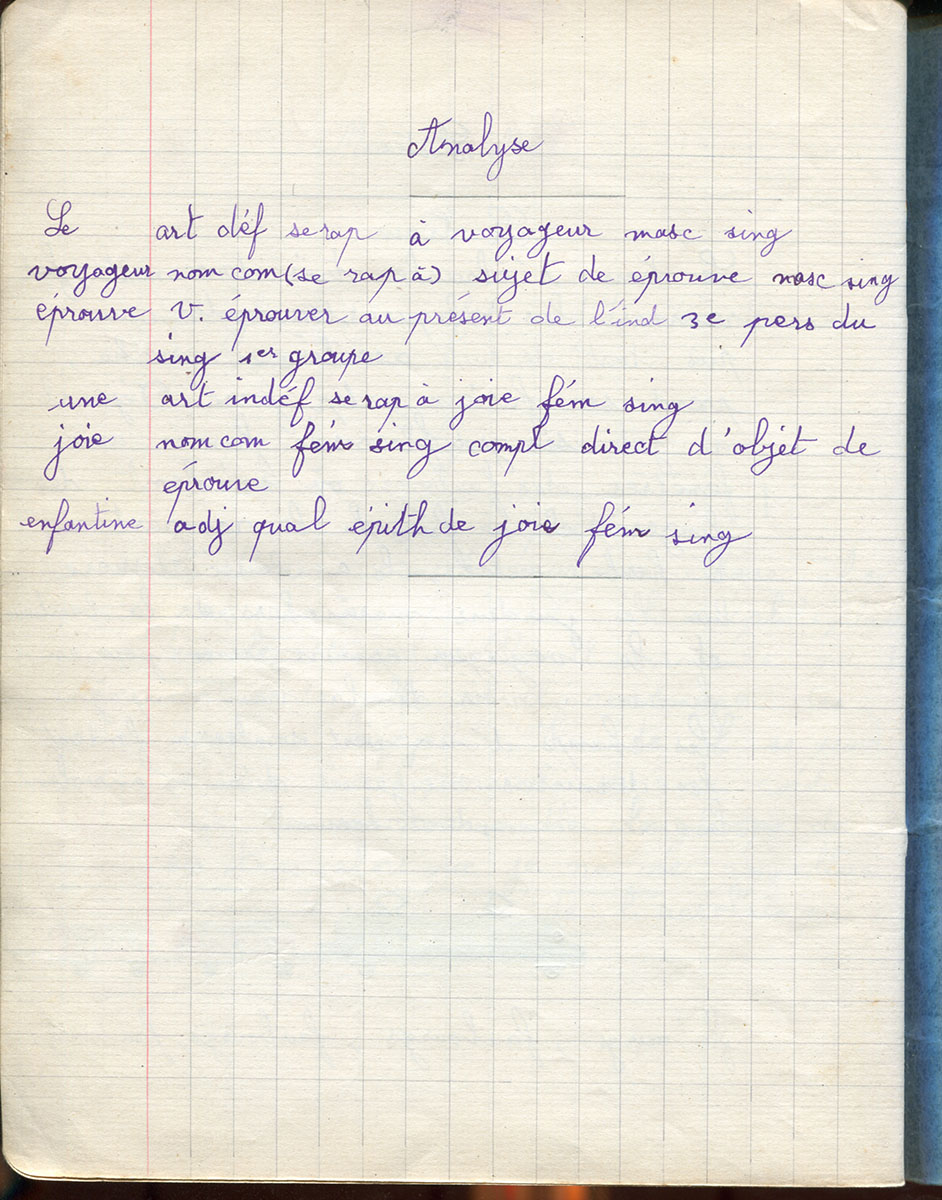 Analyse
Le art déf se rap à voyageur masc sing
voyageur nom com (se rap à) sujet de éprouve masc sing
éprouve V. éprouver au présent de l'ind 3e pers du
sing 1er groupe
une art indéf se rap à joie fém sing
joie nom com fém sing compl direct d'objet de
éprouve
enfantine adj qual épith de joie fém sing